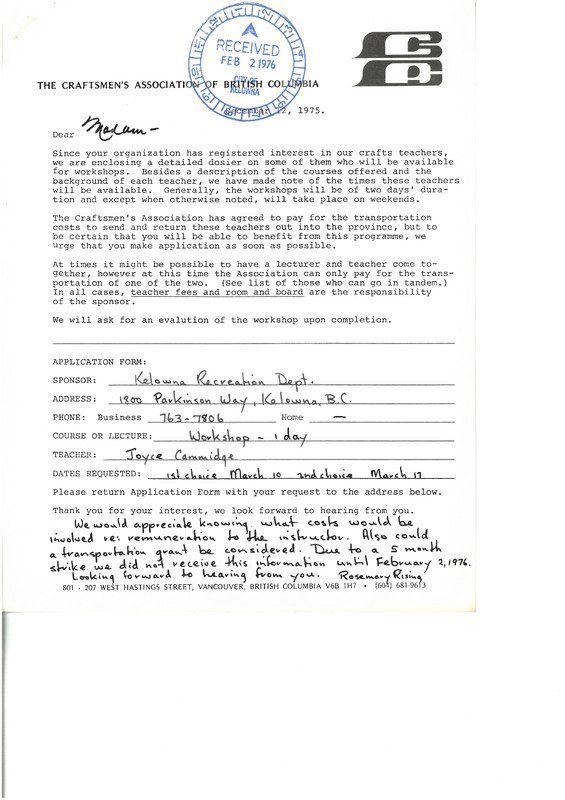 RECEIVED
FEB 2 1976
CITY OF
KELOWNA
THE CRAFTSMEN'S ASSOCIATION OF BRITISH COLUMBIA
December 12, 1975.
Dear Madam-
Since your organization has registered interest in our crafts teachers,
we are enclosing a detailed dosier on some of them who will be available
for workshops. Besides a description of the courses offered and the
background of each teacher, we have made note of the times these teachers
will be available. Generally, the workshops will be of two days' dura-
tion and except when otherwise noted, will take place on weekends.
The Craftsmen's Association has agreed to pay for the transportation
costs to send and return these teachers out into the province, but to
be certain that you will be able to benefit from this programme, we
urge that you make application as soon as possible.
At times it might be possible to have a lecturer and teacher come to-
gether, however at this time the Association can only pay for the trans-
portation of one of the two. (See list of those who can go in tandem.)
In all cases, teacher fees and room and board are the responsibility
of the sponsor.
We will ask for an evalution of the workshop upon completion.
APPLICATION FORM:
SPONSOR: Kelowna Recreation Dept.
ADDRESS: 1800 Parkinson Way, Kelowna, B.C.
PHONE: Business 763-7806 Home —
COURSE OR LECTURE: Workshop - 1 day
TEACHER: Joyce Cammidge
DATES REQUESTED: 1st choice March 10 2nd choice March 17
Please return Application Form with your request to the address below.
Thank you for your interest, we look forward to hearing from you.
We would appreciate knowing what costs would be
involved re: remuneration to the instructor. Also could
a transportation grant be considered. Due to a 5 month
strike we did not receive this information until February 2, 1976.
Looking forward to hearing from you. Rosemary Rising
801 - 207 WEST HASTINGS STREET, VANCOUVER, BRITISH COLUMBIA V6B 1H7 • (604) 681-9613